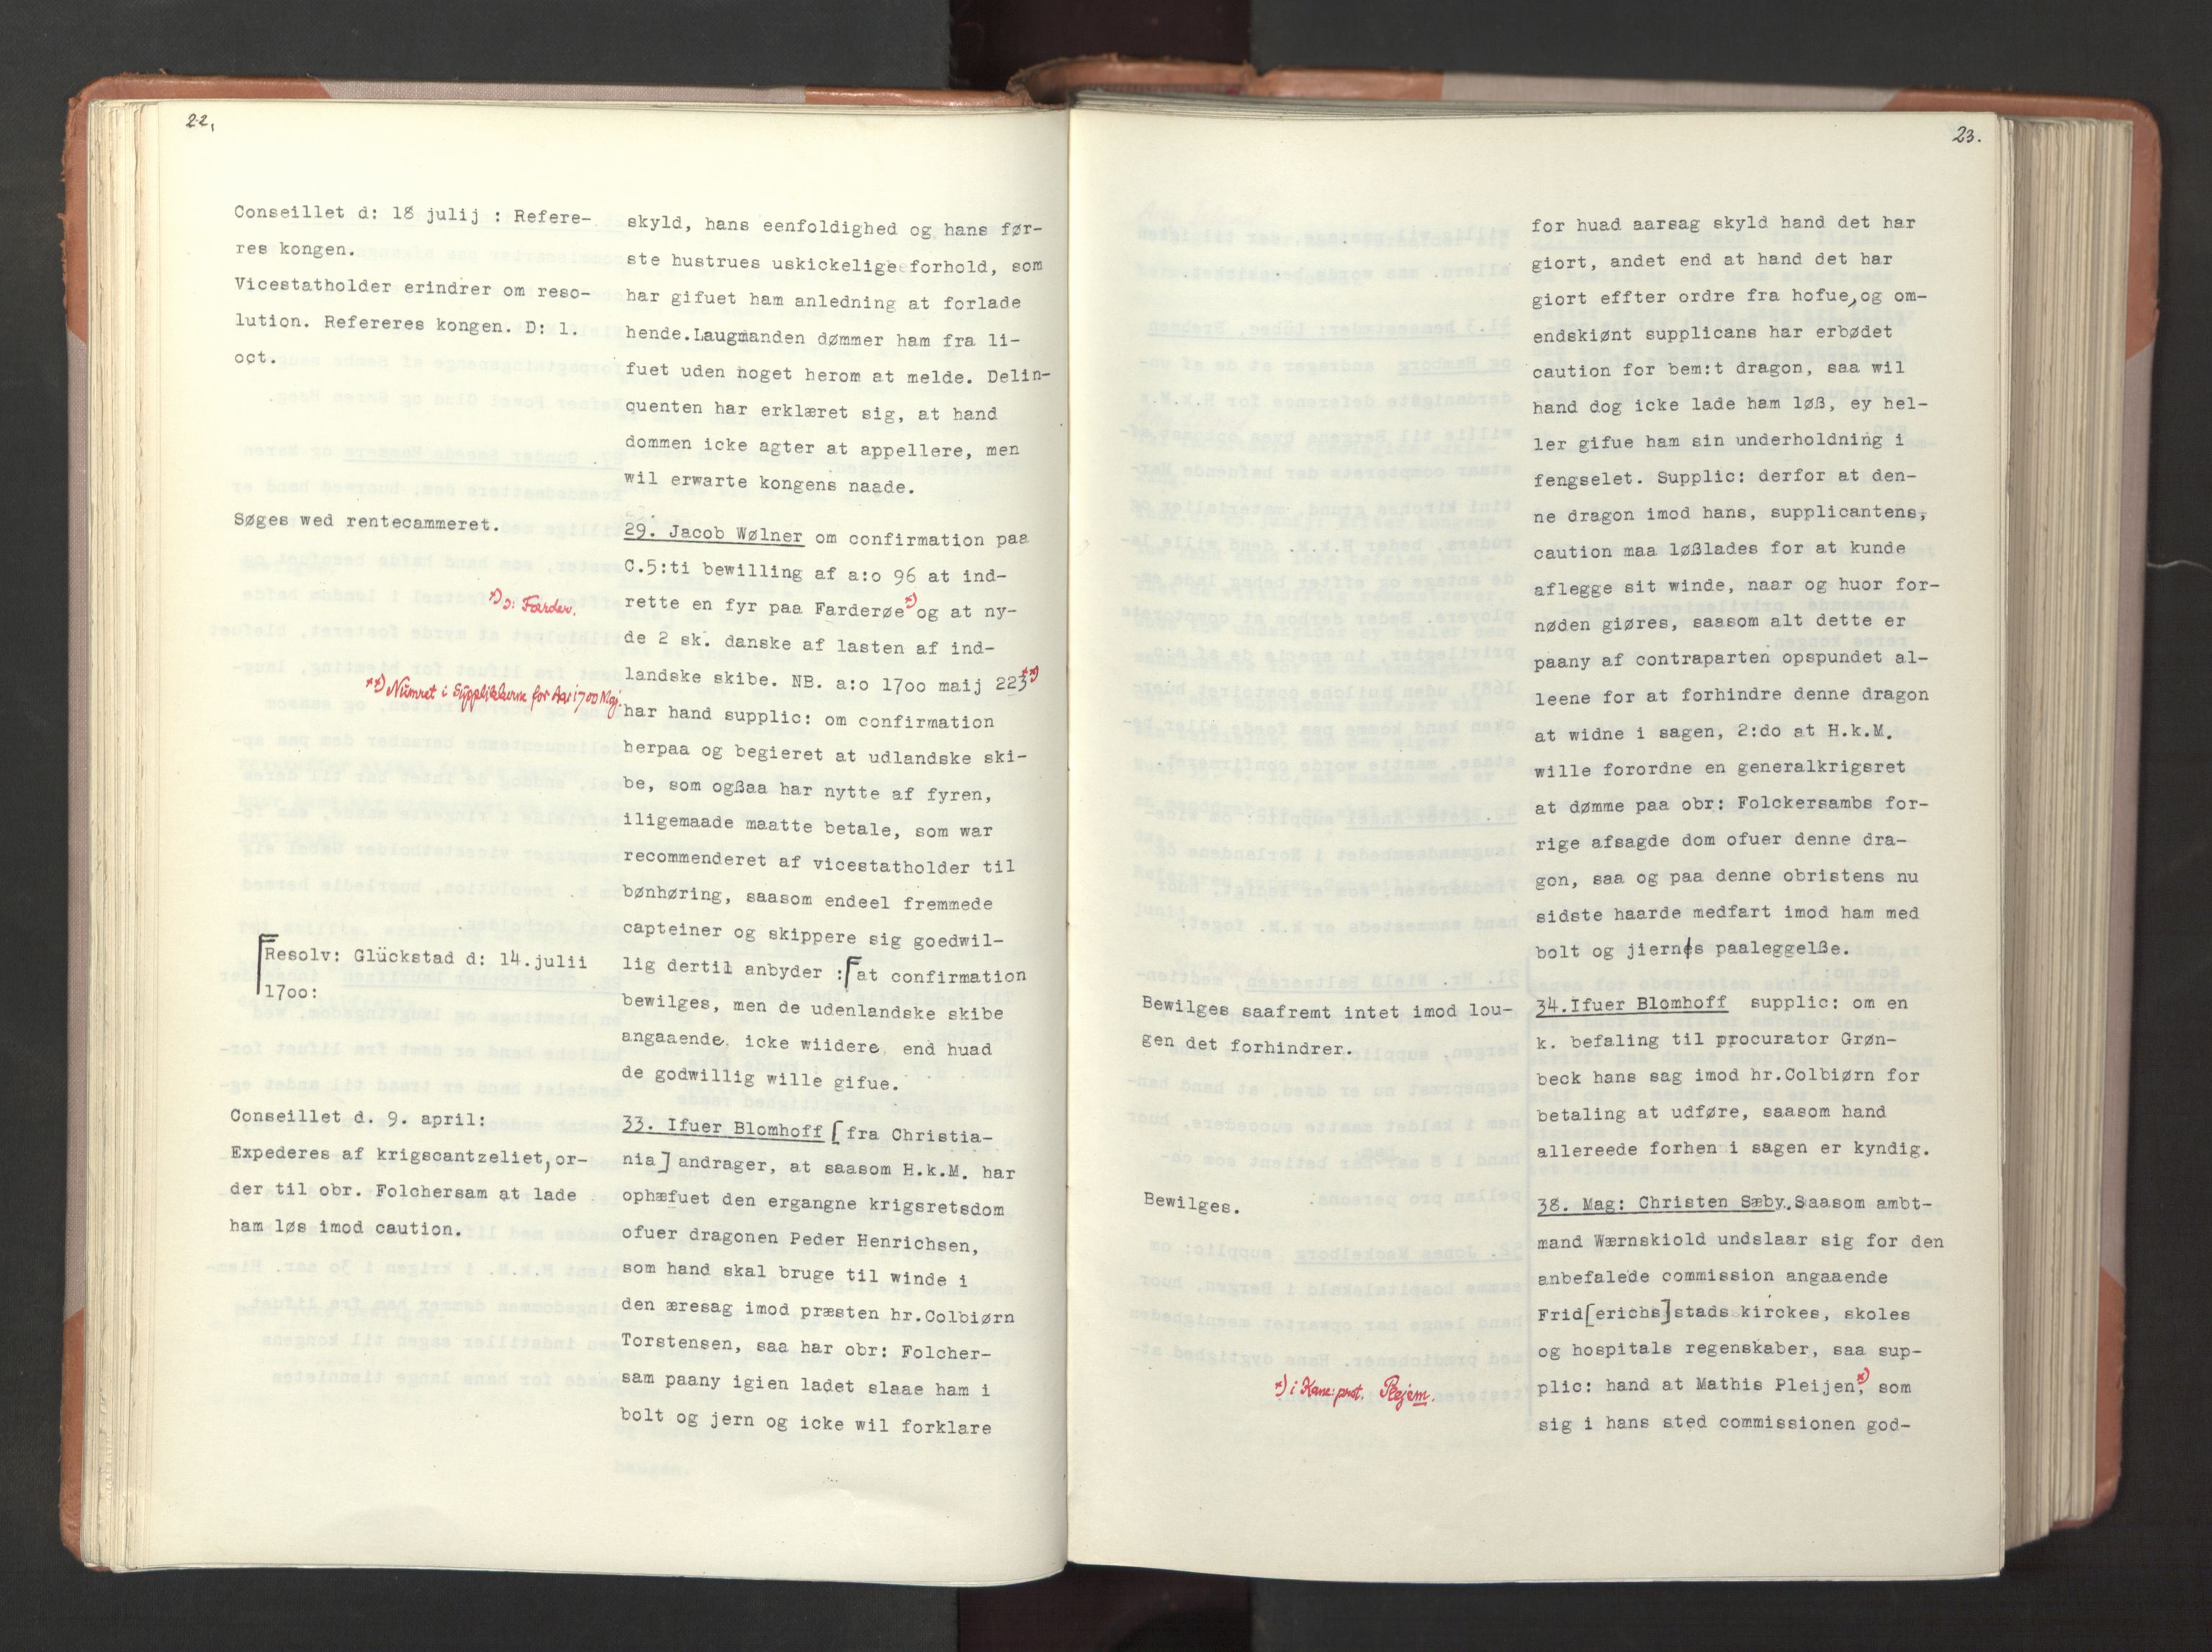 22.
Conseillet d: 18 julij : Refere-
res kongen.
Vicestatholder erindrer om reso-
lution. Refereres kongen. D: 1.
oct.
skyld, hans eenfoldighed og hans før-
ste hustrues uskickelige forhold, som
har gifuet ham anledning at forlade
hende.Laugmanden dømmer ham fra li-
fuet uden noget herom at melde. Delin-
quenten har erklæret sig, at hand
dommen icke agter at appellere, men
wil erwarte kongens naade.
Søges wed rentecammeret.
29. Jacob Wølner om confirmation paa
C.5:ti bewilling af a:o 96 at ind-
rette en fyr paa Farderøe *) og at ny-
de 2 sk. danske af lasten af ind-
landske skibe. NB. a:o 1700 maij 223 **)
har hand supplic: om confirmation
herpaa og begieret at udlandske ski-
be, som ogßaa har nytte af fyren,
iligemaade maatte betale, som war
recommenderet af vicestatholder til
bønhøring, saasom endeel fremmede
capteiner og skippere sig goedwil-
lig dertil anbyder :[at confirmation
bewilges, men de udenlandske skibe
angaaende icke wiidere end huad
de godwillig wille gifue.
*) ɔ: Færder.
**) Numret i Supplikkerne for Aar 1700 Maj.
[Resolv: Glückstad d: 14.julii
1700:
Conseillet d. 9. april:
Expederes af krigscantzeliet, or-
der til obr. Folchersam at lade
ham løs imod caution.
33. Ifuer Blomhoff [fra Christia-
nia] andrager, at saasom H.k.M. har
ophæfuet den ergangne krigsretsdom
ofuer dragonen Peder Henrichsen,
som hand skal bruge til winde i
den æresag imod præsten hr.Colbiørn
Torstensen, saa har obr: Folcher-
sam paany igien ladet slaae ham i
bolt og jern og icke wil forklare
23.
for huad aarsag skyld hand det har
giort, andet end at hand det har
giort effter ordre fra hofue, og om-
endskiønt supplicans har erbødet
caution for bem:t dragon, saa wil
hand dog icke lade ham løß, ey hel-
ler gifue ham sin underholdning i
fengselet. Supplic: derfor at den-
ne dragon imod hans, supplicantens,
caution maa løßlades for at kunde
aflegge sit winde, naar og huor for-
nøden giøres, saasom alt dette er
paany af contraparten opspundet al-
leene for at forhindre denne dragon
at widne i sagen, 2:do at H.k.M.
wille forordne en generalkrigsret
at dømme paa obr: Folckersambs for-
rige afsagde dom ofuer denne dra-
gon, saa og paa denne obristens nu
sidste haarde medfart imod ham med
bolt og jierns paaleggelße.
Bewilges saafremt intet imod lou-
gen det forhindrer.
34.Ifuer Blomhoff supplic: om en
k. befaling til procurator Grøn-
beck hans sag imod hr.Colbiørn for
betaling at udføre, saasom hand
allereede forhen i sagen er kyndig.
Bewilges.
38. Mag: Christen Sæby. Saasom ambt-
mand Wærnskiold undslaar sig for den
anbefalede commission angaaende
Frid[erichs]stads kirckes, skoles
og hospitals regenskaber, saa sup-
plic: hand at Mathis Pleijen, *) som
sig i hans sted commissionen god-
*) i Kanc: prot. Plejem.